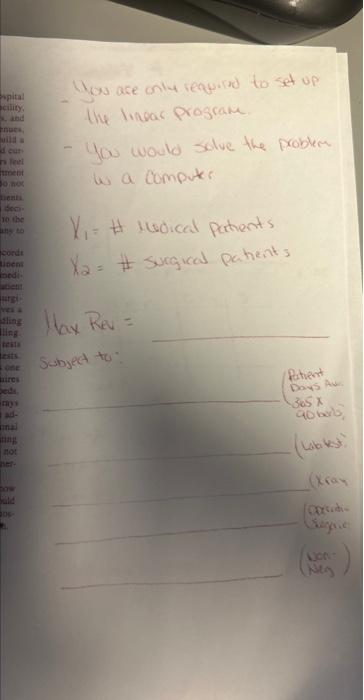 - You are only required to set up
the linear program.
- You would solve the problem
w a computer
X1 = # Medical patients
X2 = # Surgical patients
Max Rev =
Subject to:
(Patient
Days Av.
365 X
90 beds)
(Lab test)
(Xray
(Non-
Neg)
spital
acility,
s, and
enues,
uild a
d cur-
rs feel
tment
do not
tients
deci-
to the
any to
cords
tment
medi-
atient
urgi-
ves a
dling
lling
tests
tests.
one
uires
beds,
-rays
ad-
onal
ting
not
ner-
now
ould